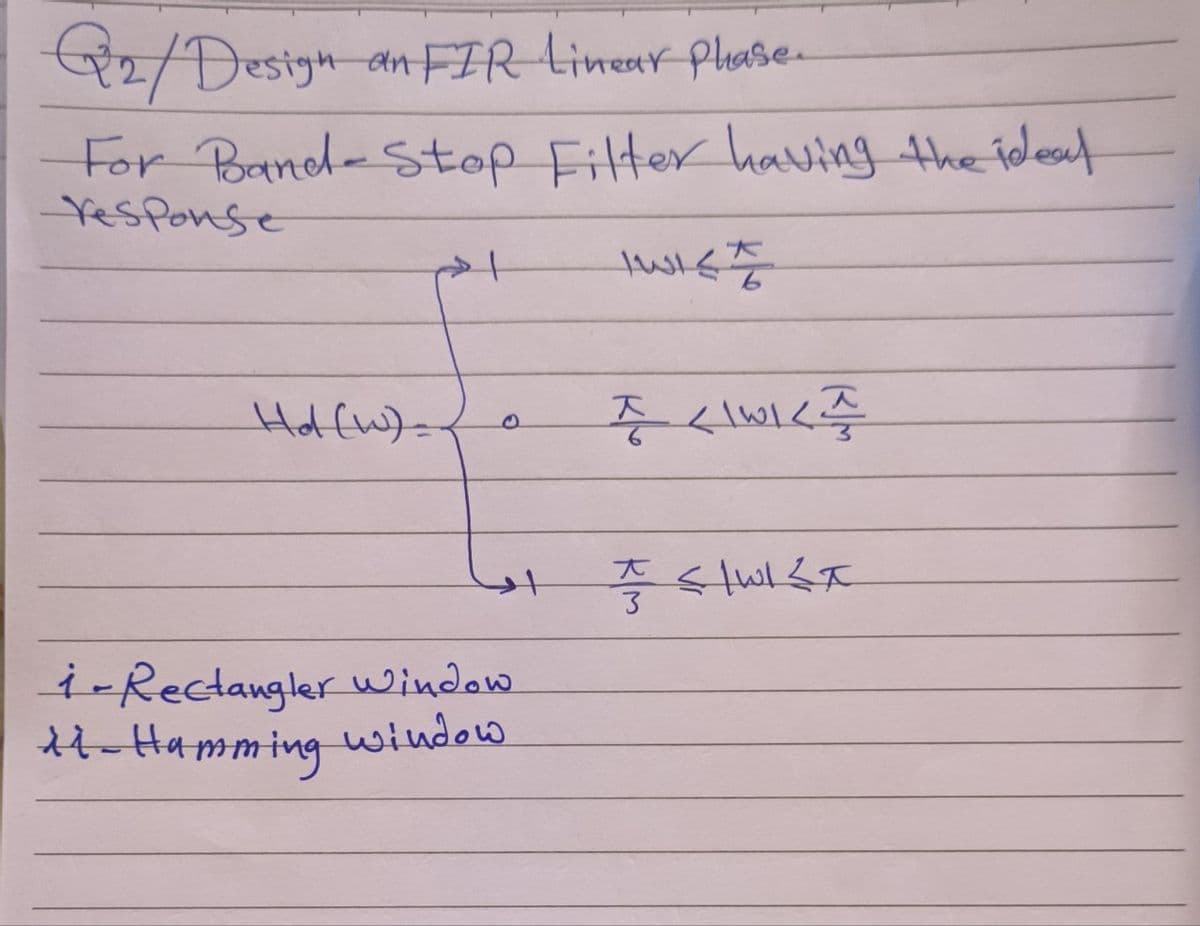 Q2/ Design an FIR Linear Phase.
For Band-Stop Filter having the ideal
response
1 |w| ≤ π/6
Hd(w) = { 0 π/6 < |w| < π/3
1 π/3 ≤ |w| ≤ π
i - Rectangler window
ii - Hamming window